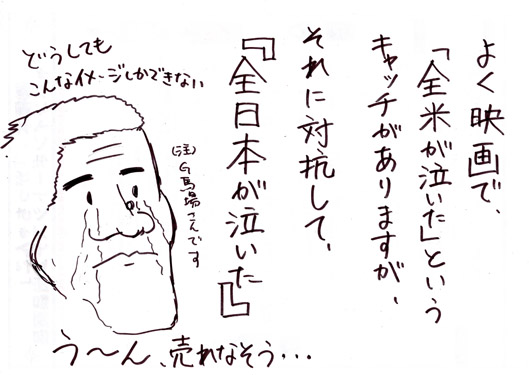 よく映画で、
「全米が泣いた」という
キャッチがありますが、
それに対抗して、
『全日本が泣いた』
どうしても
こんなイメージしかできない
(注)G馬場さんです
う〜ん、売れなそう・・・